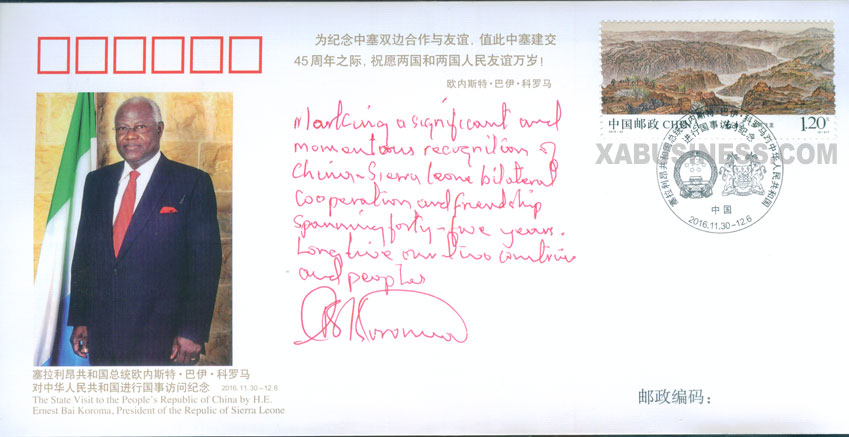 为纪念中塞双边合作与友谊，值此中塞建交
45周年之际，祝愿两国和两国人民友谊万岁！
欧内斯特·巴伊·科罗马
Marking a significant and
momentous recognition of
China-Sierra Leone bilateral
cooperation and friendship
spanning forty-five years.
Long live our two countries
and peoples
Koroma
中国邮政 CHINA
1.20元
XABUSINESS.COM
塞拉利昂共和国总统欧内斯特·巴伊·科罗马对中华人民共和国
进行国事访问纪念
中国
2016.11.30-12.6
塞拉利昂共和国总统欧内斯特·巴伊·科罗马
对中华人民共和国进行国事访问纪念 2016.11.30-12.6
The State Visit to the People's Republic of China by H.E.
Ernest Bai Koroma, President of the Repulic of Sierra Leone
邮政编码：